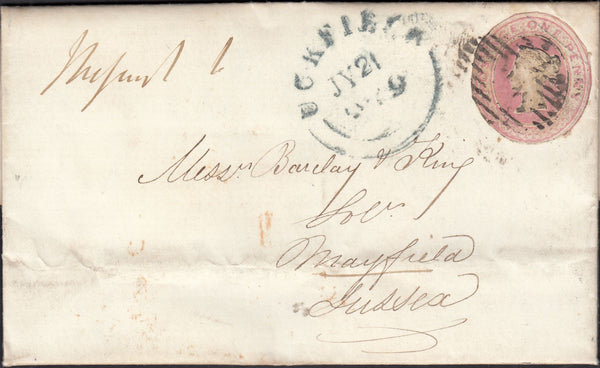 UCKFIELD
JY 21
1849
ONE PENNY
Messrs Barclay & King
Solrs
Mayfield
Sussex